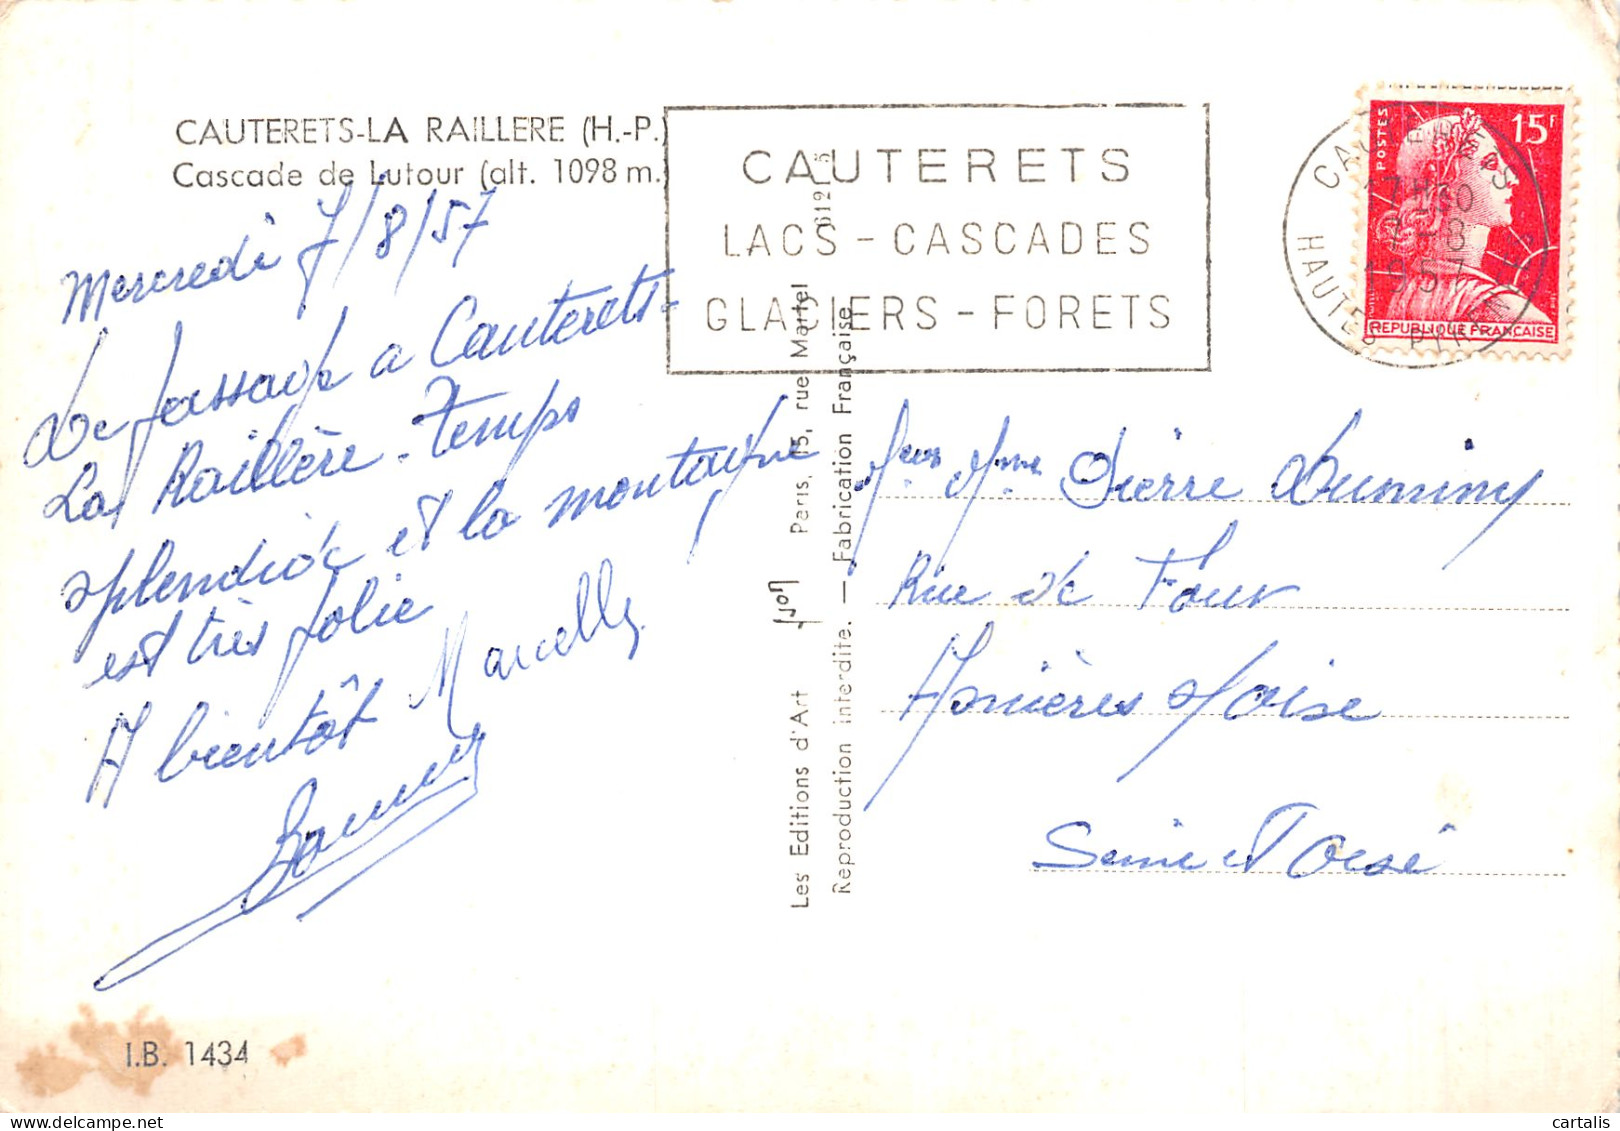 CAUTERETS-LA RAILLERE (H.-P.)
Cascade de Lutour (alt. 1098 m.)
Mercredi 7/8/57
De passage a Cauterets-
La Raillère - temps
splendide et la montagne
est très jolie
A bientôt Marcelle
I.B. 1434
CAUTERETS
LACS - CASCADES
GLACIERS - FORETS
Les Editions d'Art Yvon Paris, 15, rue Martel
Reproduction interdite. — Fabrication Française
POSTES
15F
REPUBLIQUE FRANÇAISE
CAUTERETS
17H30
7-8
1957
HAUTES PYRENEES
Mme Pierre Duminy
Rue de Four
Asnières s/Oise
Seine et Oise
cartalis